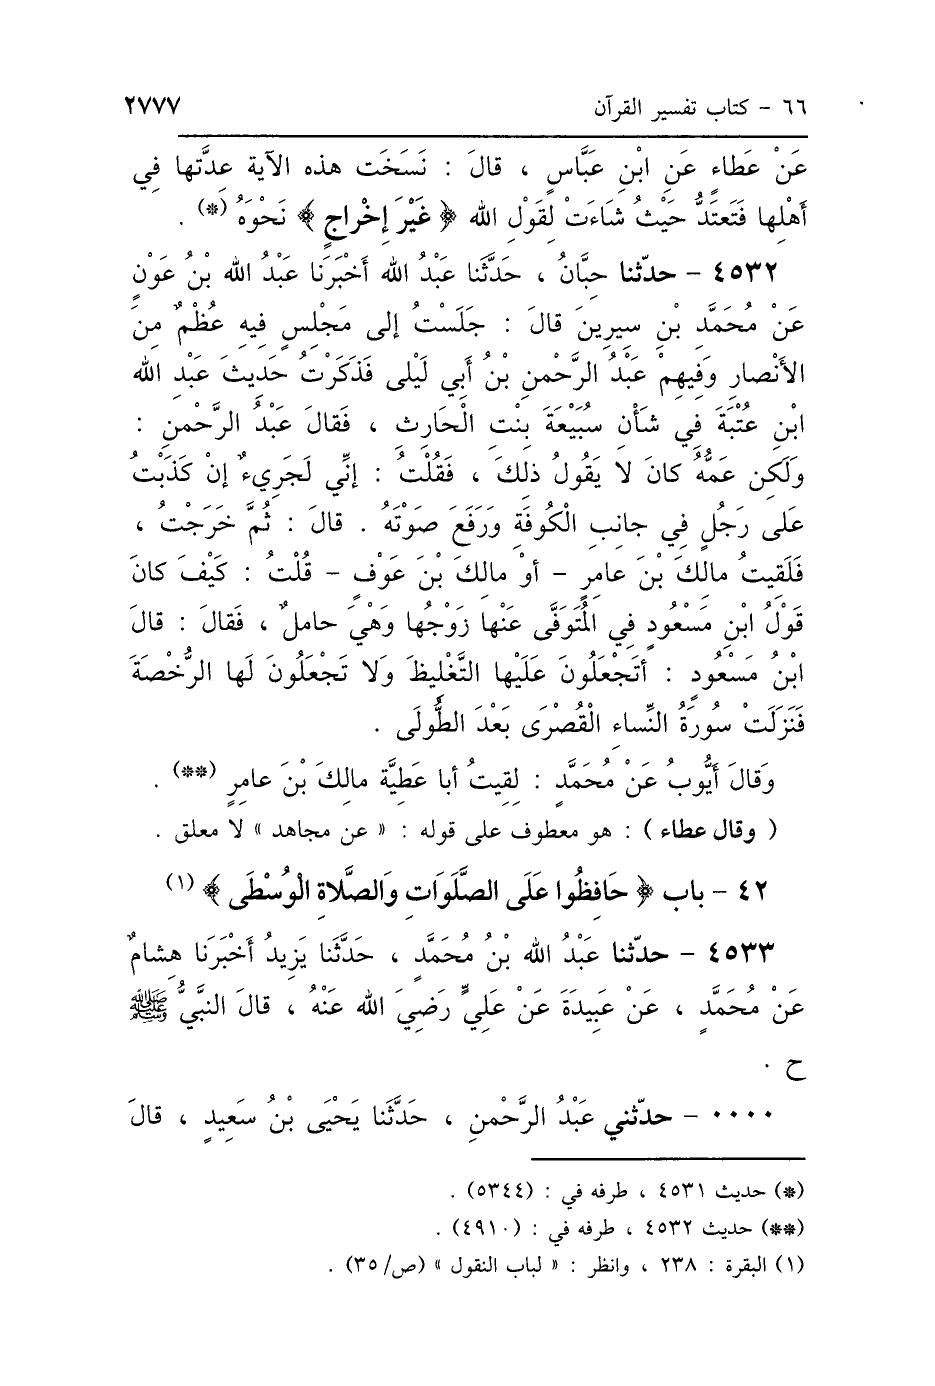 ٦٦ - كتاب تفسير القرآن ٢٧٧٧
عَنْ عَطاءٍ عَنِ ابْنِ عَبَّاسٍ ، قالَ : نَسَخَت هذه الآية عدَّتها فِي
أهْلِها فَتَعتَدُّ حَيْثُ شَاءَتْ لِقَوْلِ الله ﴿ غَيْرَ إِخْراجٍ ﴾ نَحْوَهُ (*) .
٤٥٣٢ - حدّثنا حِبَّانُ ، حَدَّثَنا عَبْدُ الله أَخْبَرَنَا عَبْدُ الله بْنُ عَوْنٍ
عَنْ مُحَمَّدِ بْنِ سِيرِينَ قالَ : جَلَسْتُ إلى مَجْلِسٍ فِيهِ عُظْمٌ مِنَ
الأَنْصارِ وَفِيهِمْ عَبْدُ الرَّحْمنِ بْنُ أبي لَيْلى فَذَكَرْتُ حَدِيثَ عَبْدِ الله
ابْنِ عُتْبَةَ فِي شَأْنِ سُبَيْعَةَ بِنْتِ الْحَارِثِ ، فَقالَ عَبْدُ الرَّحْمنِ :
وَلَكِن عَمُّهُ كانَ لا يَقُولُ ذلكَ ، فَقُلْتُ : إنِّي لَجَرِيءٌ إنْ كَذَبْتُ
عَلى رَجُلٍ فِي جانِبِ الْكُوفَةِ وَرَفَعَ صَوْتَهُ . قالَ : ثُمَّ خَرَجْتُ ،
فَلَقِيتُ مالكَ بْنَ عامرٍ - أوْ مالِكَ بْنَ عَوْفٍ - قُلْتُ : كَيْفَ كانَ
قَوْلُ ابْنِ مَسْعُودٍ فِي المُتَوَفَّى عَنْها زَوْجُها وَهْيَ حاملٌ ، فَقالَ : قالَ
ابْنُ مَسْعُودٍ : أتَجْعَلُونَ عَلَيْها التَّغْلِيظَ وَلا تَجْعَلُونَ لَها الرُّخْصَةَ
فَنَزَلَتْ سُورَةُ النِّساءِ الْقُصْرَى بَعْدَ الطُّولَى .
وَقالَ أيُّوبُ عَنْ مُحَمَّدٍ : لقِيتُ أبا عَطِيَّة مالِكَ بْنَ عامِرٍ (**) .
( وقال عطاء ) : هو معطوف على قوله : « عن مجاهد » لا معلق .
٤٢ - باب ﴿ حَافِظُوا عَلَى الصَّلَوَاتِ وَالصَّلَاةِ الْوُسْطَى ﴾ (١)
٤٥٣٣ - حدّثنا عَبْدُ الله بْنُ مُحَمَّدٍ ، حَدَّثَنا يَزِيدُ أَخْبَرَنَا هِشامٌ
عَنْ مُحَمَّدٍ ، عَنْ عَبِيدَةَ عَنْ عَلِيٍّ رَضِيَ الله عَنْهُ ، قالَ النَّبيُّ ﷺ
ح .
٠٠٠٠ - حدّثني عَبْدُ الرَّحْمنِ ، حَدَّثَنا يَحْيَى بْنُ سَعِيدٍ ، قالَ
(*) حديث ٤٥٣١ ، طرفه في : (٥٣٤٤) .
(**) حديث ٤٥٣٢ ، طرفه في : (٤٩١٠) .
(١) البقرة : ٢٣٨ ، وانظر : « لباب النقول » (ص/٣٥) .